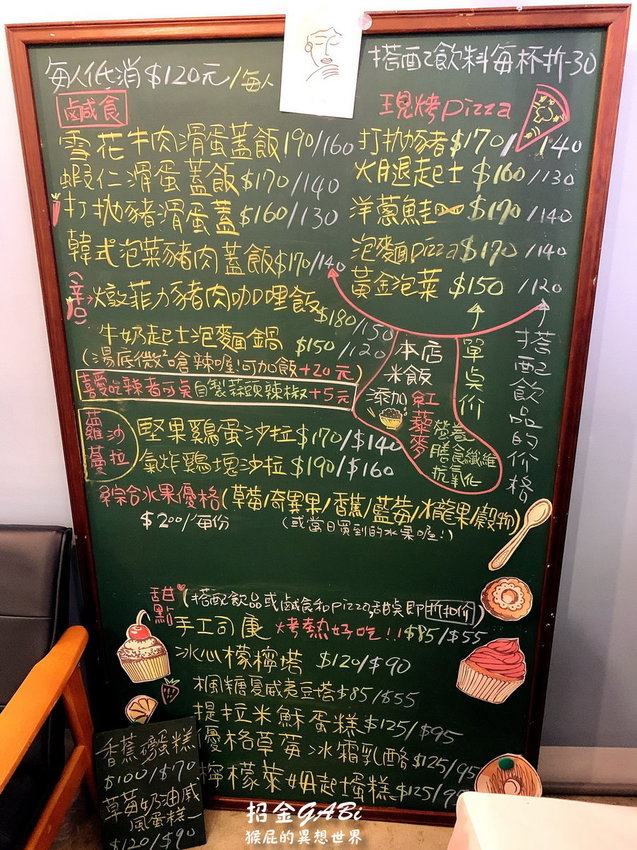 每人低消$120元/每人
搭配飲料每杯折-30
鹹食
雪花牛肉滑蛋蓋飯190/160
蝦仁滑蛋蓋飯$170/140
打拋豬滑蛋蓋$160/130
韓式泡菜豬肉蓋飯$170/140
(辛口)
燉菲力豬肉咖哩飯
$180/150
牛奶起士泡麵鍋 $150/120
(湯底微嗆辣喔!可加飯+20元)
喜愛吃辣者可點自製蒜頭辣椒+5元
現烤pizza
打拋豬$170/140
火腿起士$160/130
洋蔥鮭$170/140
泡麵pizza$170/140
黃金泡菜$150/120
本店
米飯
添加紅藜麥
營養
膳食纖維
抗氧化
單點价
搭配飲品的价格
蘿蔓沙拉
堅果雞蛋沙拉$170/$140
氣炸雞塊沙拉$190/$160
綜合水果優格(草莓/奇異果/香蕉/藍莓/火龍果/穀物)
$200/每份
(或當日買到的水果喔!)
甜點
(搭配飲品或鹹食和pizza甜點即折扣价)
手工司康 烤熱好吃!!$85/$55
冰心檬檸塔 $120/$90
楓糖夏威夷豆塔$85/$55
提拉米酥蛋糕$125/$95
優格草莓冰霜乳酪$125/95
檸檬萊姆起士蛋糕$125/95
香蕉磅蛋糕
$100/$70
草莓奶油戚
風蛋糕
$120/$90
招金GABi
猴屁的異想世界